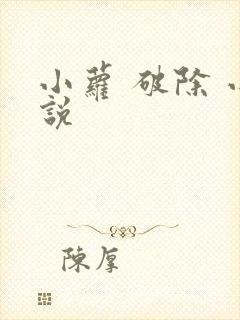 小蘿 破除
說
陳厚